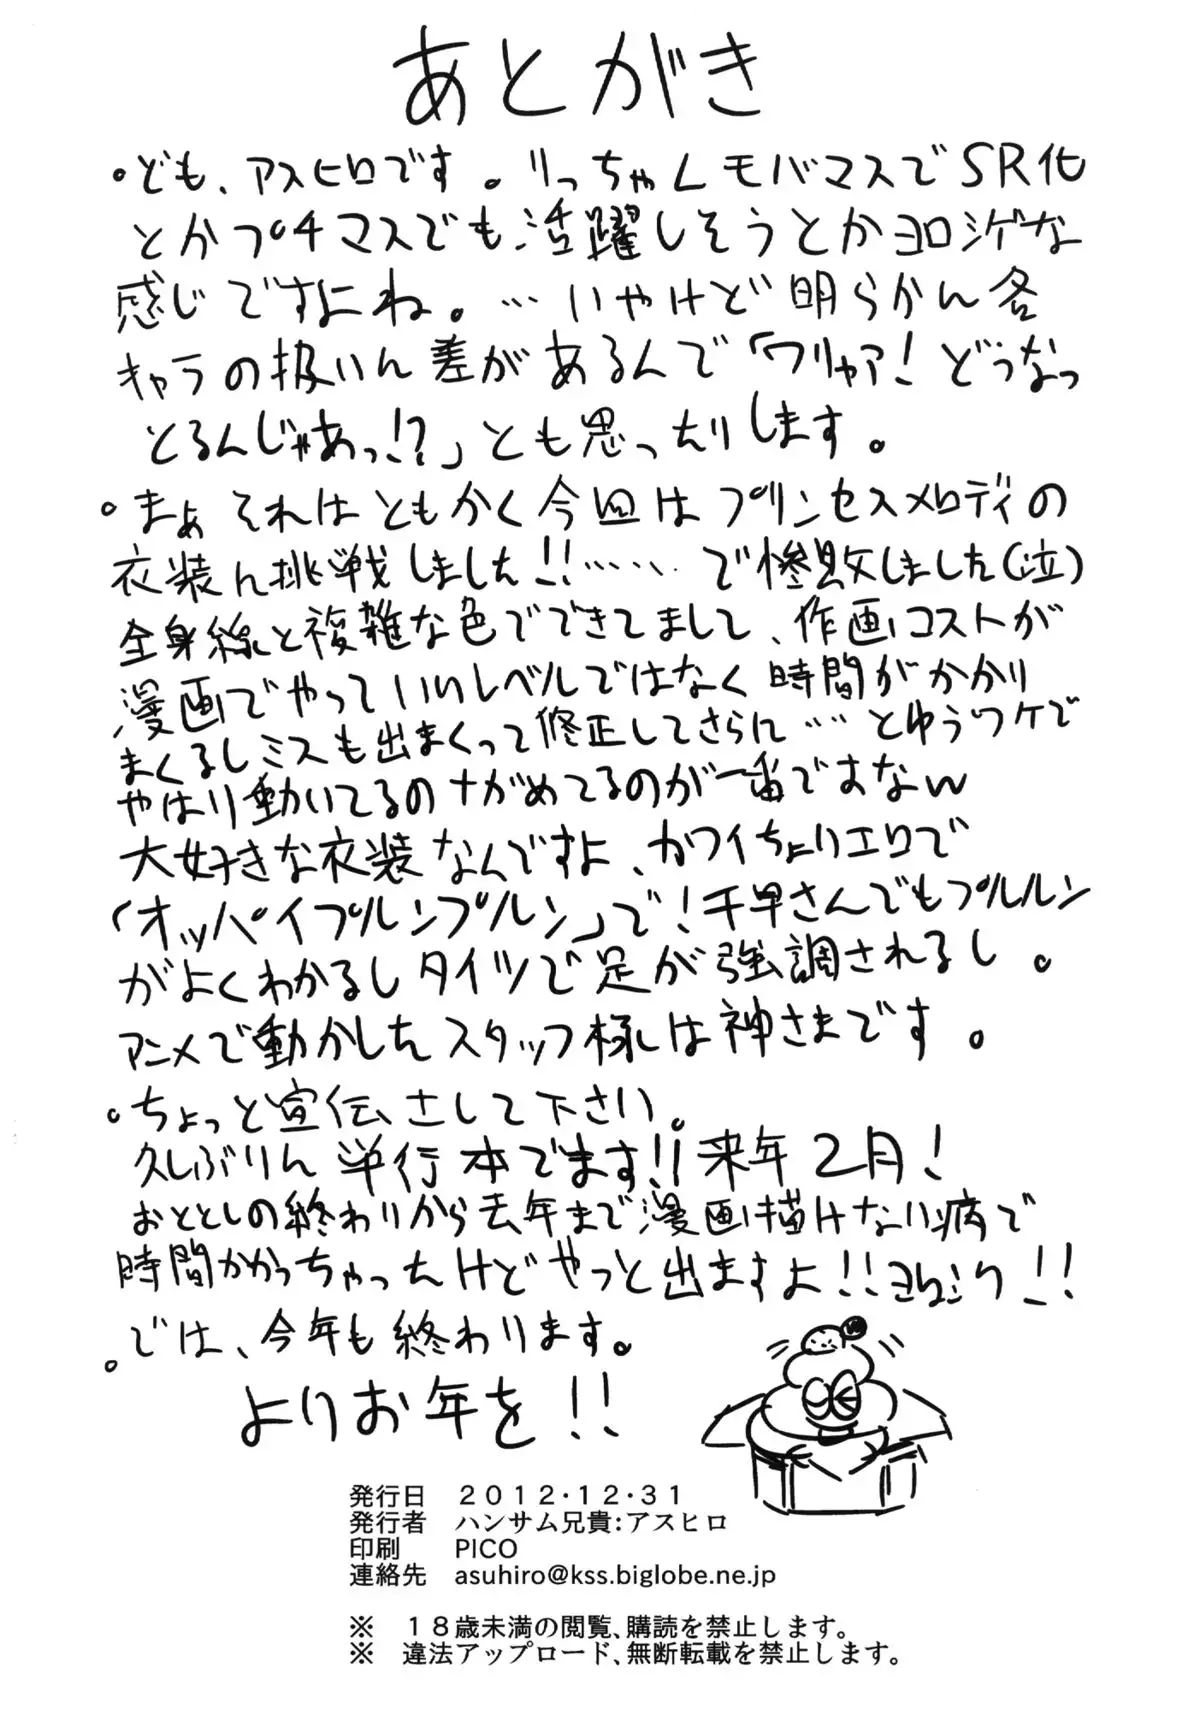 あとがき
・ども、アスヒロです。りっちゃんモバマスでSR化
とかプチマスでも活躍しそうとかヨロシゲな
感じですよね。…いやけど明らかに各
キャラの扱いに差があるんで「ワリャア!どうなっ
とるんじゃあっ!?」とも思ったりします。
・まぁそれはともかく今回はプリンセスメロディの
衣装に挑戦しました!!……で惨敗しました(泣)
全身線と複雑な色でできてまして、作画コストが
漫画でやっていいレベルではなく時間がかかり
まくるしミスも出まくって修正してさらに……とゆうワケで
やはり動いてるのナガめてるのが一番ですなw
大好きな衣装なんですよ、カワイちょりエロで
「オッパイプルンプルン」で!千早さんでもプルルン
がよくわかるしタイツで足が強調されるし。
アニメで動かしたスタッフ様は神さまです。
・ちょっと宣伝さして下さい。
久しぶりに単行本でます!!来年2月!
おととしの終わりから去年まで漫画描けない病で
時間かかっちゃったけどやっと出ますよ!!ヨロシク!!
・では、今年も終わります。
よりお年を!!
発行日 2012・12・31
発行者 ハンサム兄貴:アスヒロ
印刷 PICO
連絡先 asuhiro@kss.biglobe.ne.jp
※ 18歳未満の閲覧、購読を禁止します。
※ 違法アップロード、無断転載を禁止します。